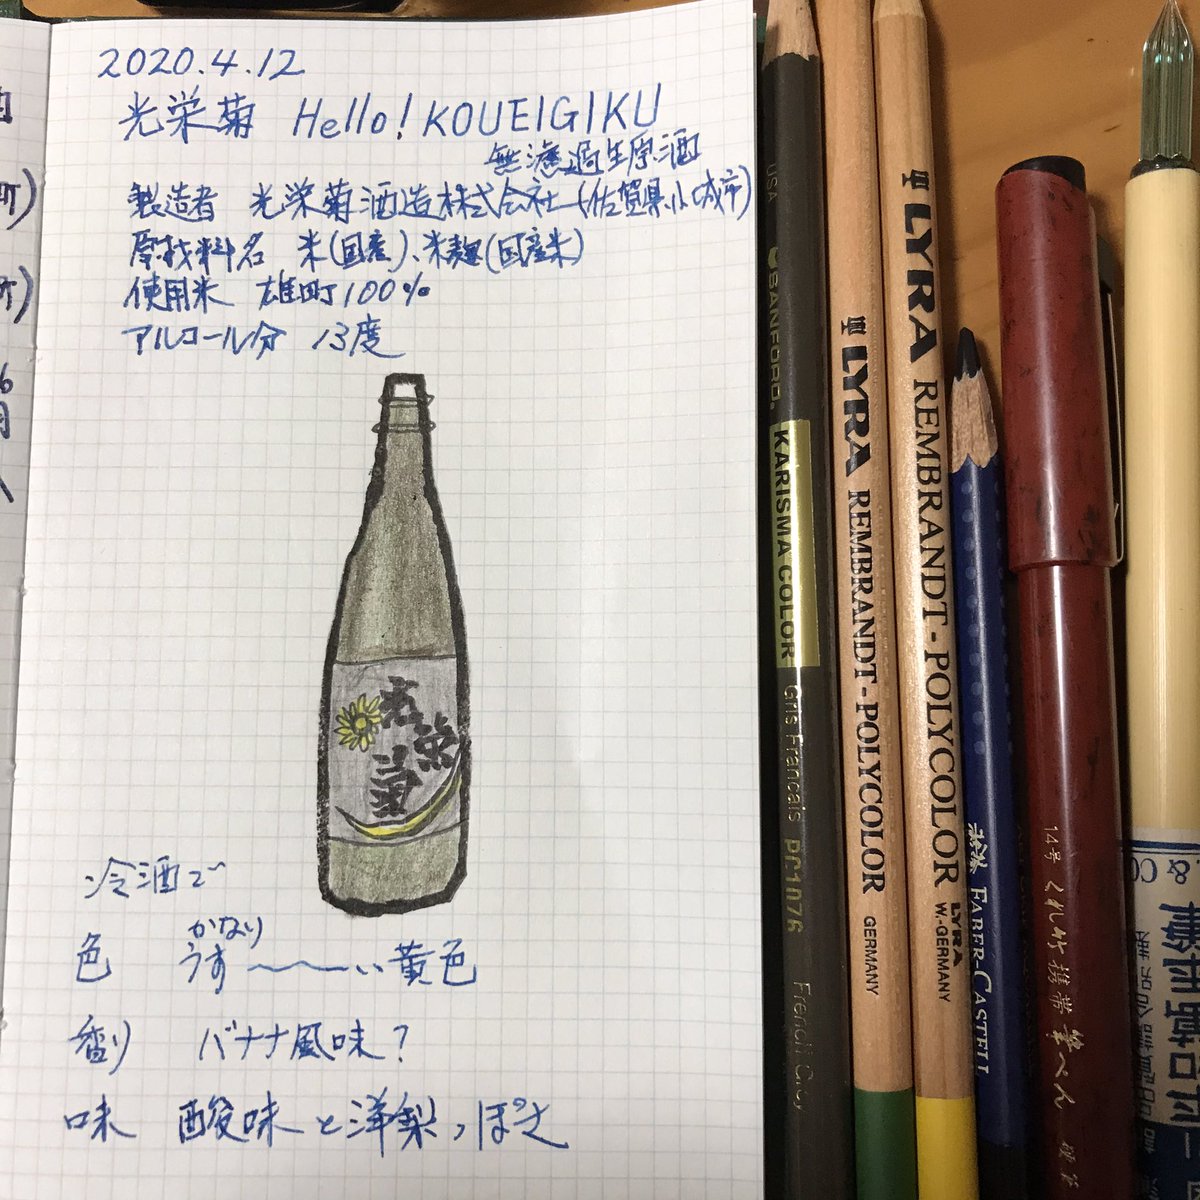 2020.4.12
光栄菊 Hello! KOUEIGIKU
無濾過生原酒
製造者 光栄菊酒造株式会社(佐賀県小城市)
原材料名 米(国産)、米麹(国産米)
使用米 雄町100%
アルコール分 13度
光栄菊
冷酒で
かなり
色 うす〜〜い黄色
香り バナナ風味?
味 酸味と洋梨っぽさ
USA SANFORD. KARISMA COLOR Gris Francais PC1076 French Grey
LYRA REMBRANDT-POLYCOLOR GERMANY
LYRA REMBRANDT-POLYCOLOR LYRA W.-GERMANY
FABER-CASTELL
14号 くれ竹携帯筆ぺん
& CO